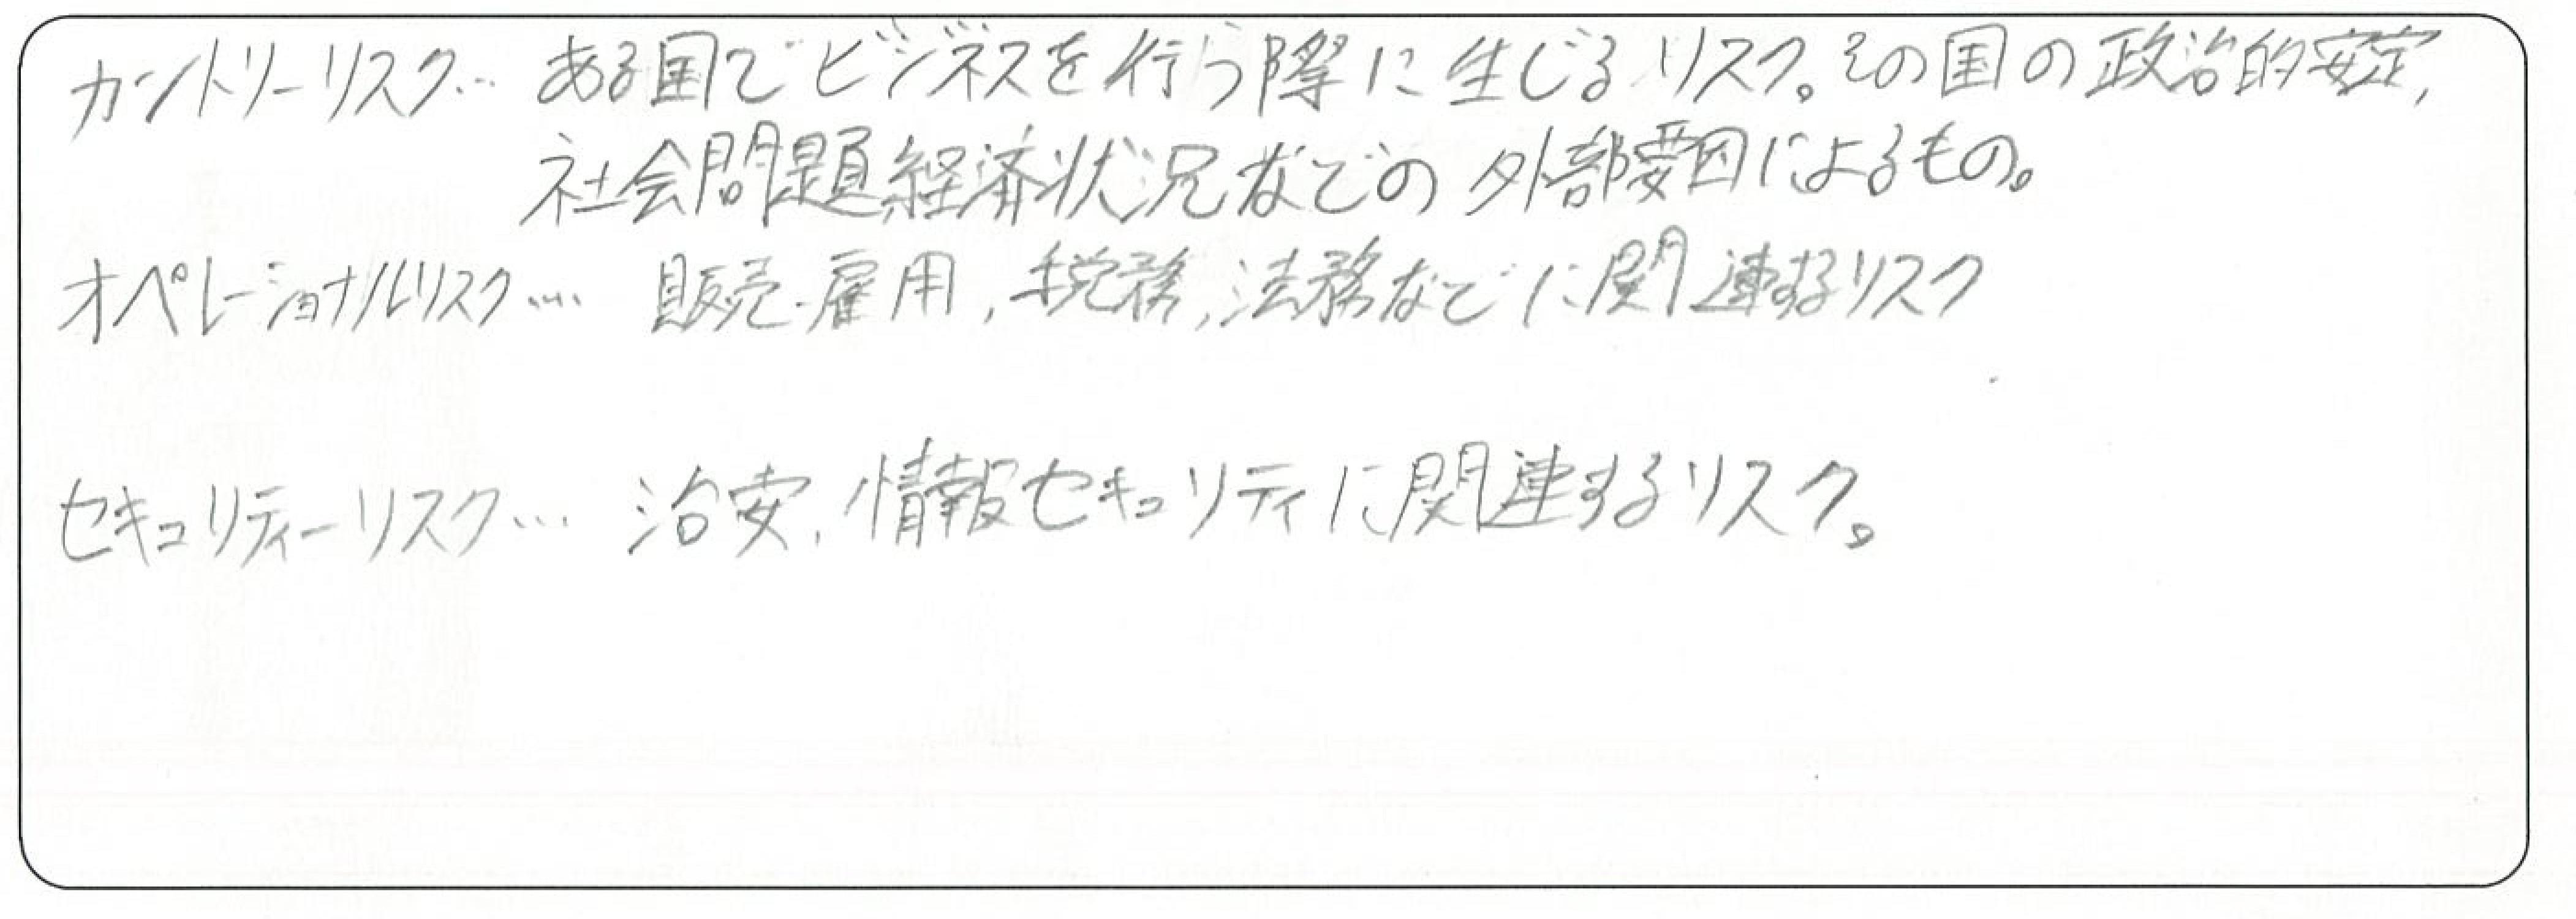 カントリーリスク… ある国でビジネスを行う際に生じるリスク。その国の政治的安定,
社会問題経済状況などの外部要因によるもの。
オペレーショナルリスク… 販売・雇用,税務,法務などに関連するリスク
セキュリティーリスク… 治安,情報セキュリティに関連するリスク。